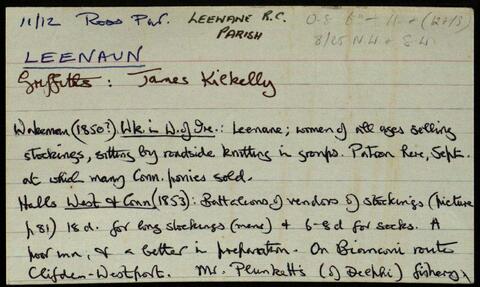 11/12 Ross Par. LEENANE R.C.
PARISH
LEENAUN
Griffiths : James Kilkelly
Wakeman (1850?) Wk. in W. of Ire.: Leenane; women of all ages selling
stockings, sitting by roadside knitting in groups. Patron here, Sept.
at which many Conn. ponies sold.
Halls West & Conn (1853): Battalions of vendors of stockings (picture
p.81) 18d. for long stockings (mens) & 6-8d for socks. A
poor inn, & a better in preparation. On Bianconi route
Clifden-Westport. Mr. Plunkett's (of Delphi) fishery